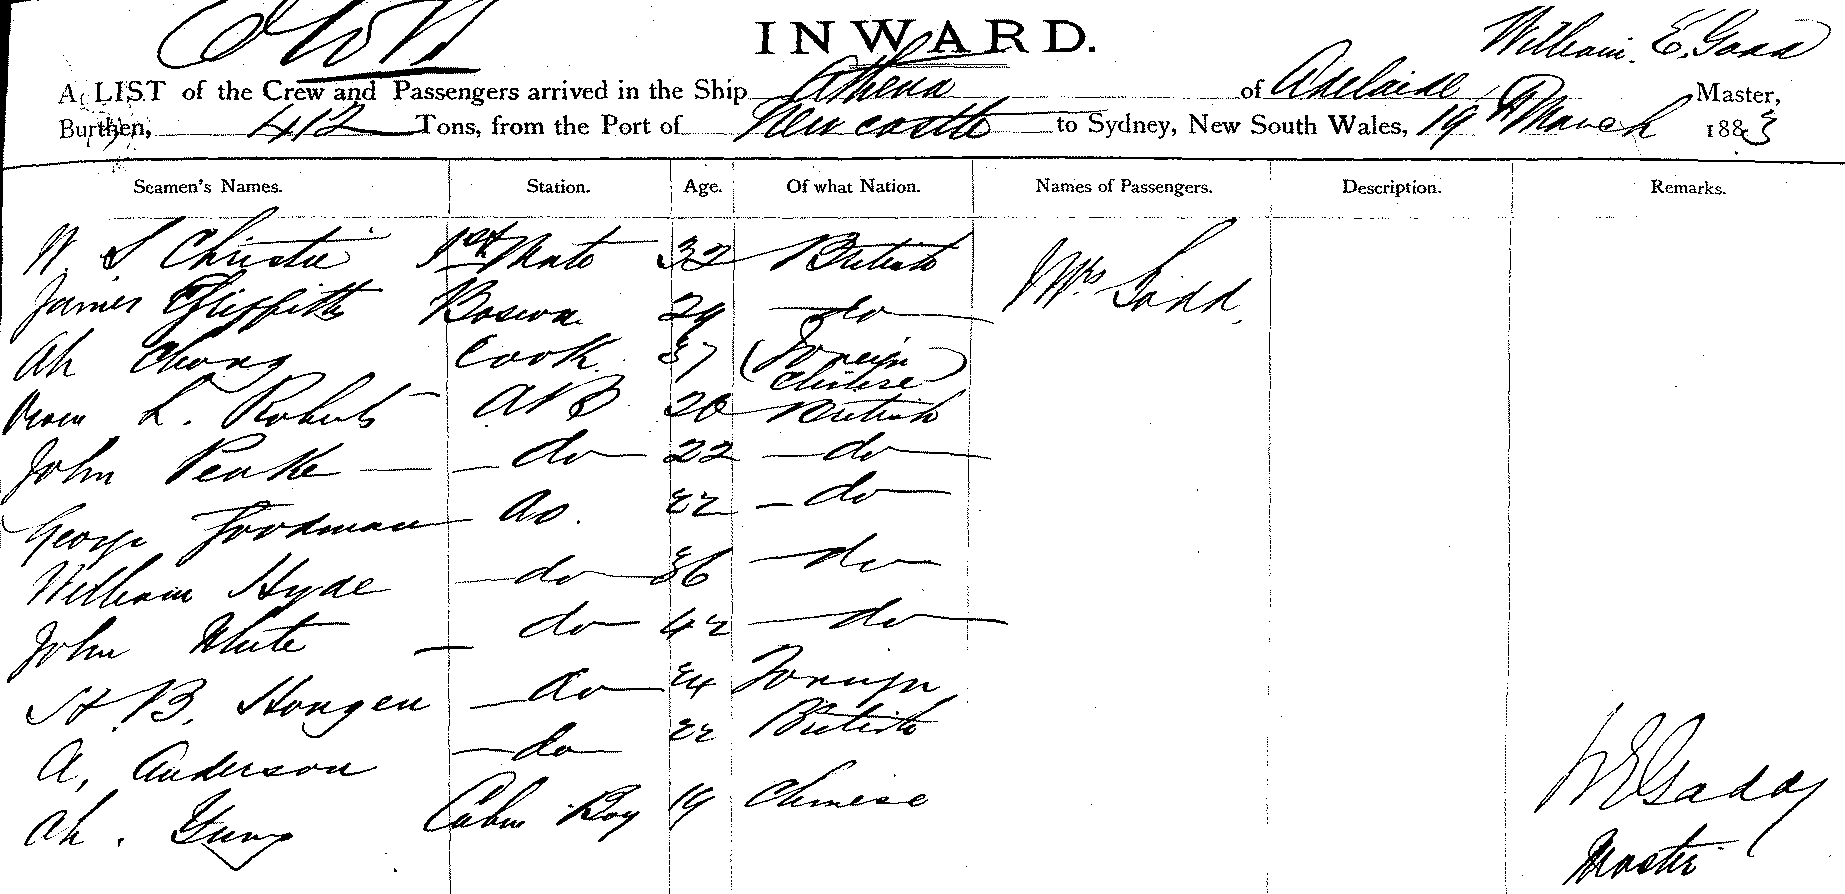 INWARD.
William. E. Gadd
A LIST of the Crew and Passengers arrived in the Ship Athena of Adelaide, Master,
Burthen, 412 Tons, from the Port of Newcastle to Sydney, New South Wales, 19th March 1883
Seamen's Names. Station. Age. Of what Nation. Names of Passengers. Description. Remarks.
W S Christie 1st Mate 32 British Mrs Gadd.
James Griffiths Boswn 29 do
Ah Chong Cook 37 (Foreign Chinese)
L. Roberts AB 20 British
John Peake do 22 do
George Goodman do. 22 do
William Hyde do 36 do
John White do 42 do
H. B. Hongen do 24 Foreign
A, Anderson do 22 British
Ah. Yung Cabin Boy 19 Chinese
W E Gadd
Master